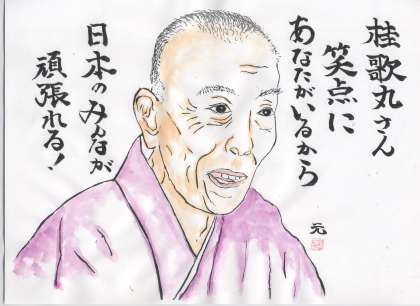 桂歌丸さん
笑点に
あなたがいるから
日本のみんなが
頑張れる!
元